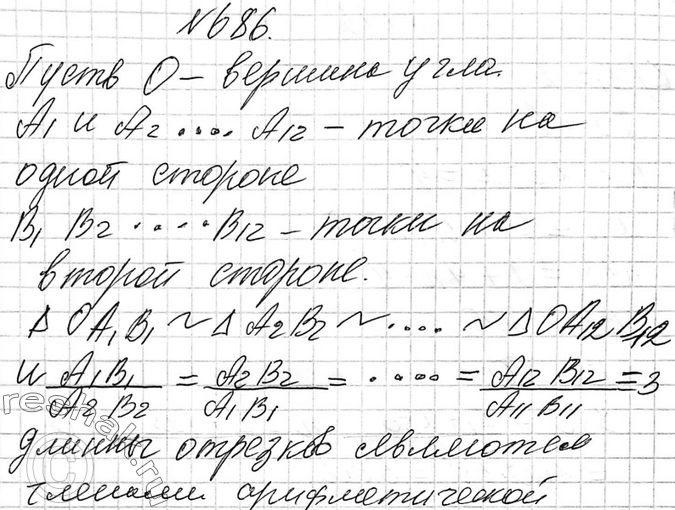 №686.
Пусть О – вершина угла.
A₁ и A₂ .... A₁₂ – точки на
одной стороне
B₁ B₂ ..... B₁₂ – точки на
второй стороне.
Δ OA₁B₁ ~ Δ A₂B₂ ~ .... ~ Δ OA₁₂B₁₂
и A₁B₁/A₂B₂ = A₂B₂/A₁B₁ = ..... = A₁₂B₁₂/A₁₁B₁₁ = 3
длинны отрезков являются
членами арифметической
reshak.ru